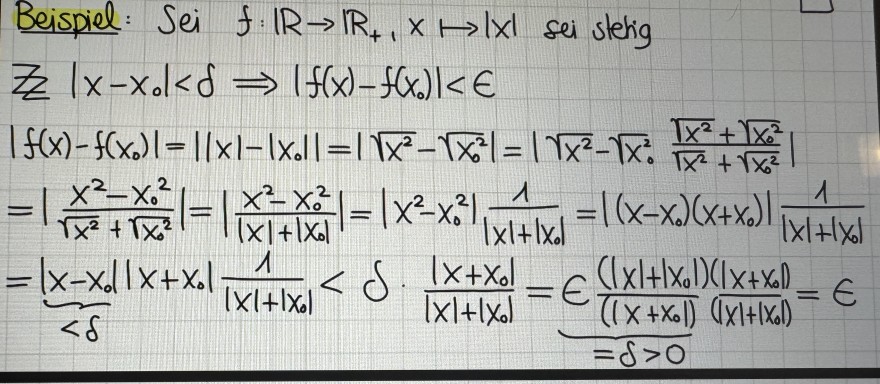 Beispiel: Sei f: ℝ → ℝ₊, x ↦ |x| sei stetig
Zz |x-x₀| < δ ⟹ |f(x)-f(x₀)| < ε
|f(x)-f(x₀)| = ||x|-|x₀|| = |√x² - √x₀²| = |√x² - √x₀² · (√x² + √x₀²)/(√x² + √x₀²)|
= |(x²-x₀²)/(√x² + √x₀²)| = |(x²-x₀²)/(|x|+|x₀|)| = |x²-x₀²| 1/(|x|+|x₀|) = |(x-x₀)(x+x₀)| 1/(|x|+|x₀|)
= |x-x₀| |x+x₀| 1/(|x|+|x₀|) < δ · |x+x₀|/(|x|+|x₀|) = ε ((|x|+|x₀|)(|x+x₀|))/((|x+x₀|)(|x|+|x₀|)) = ε
< δ
= δ > 0